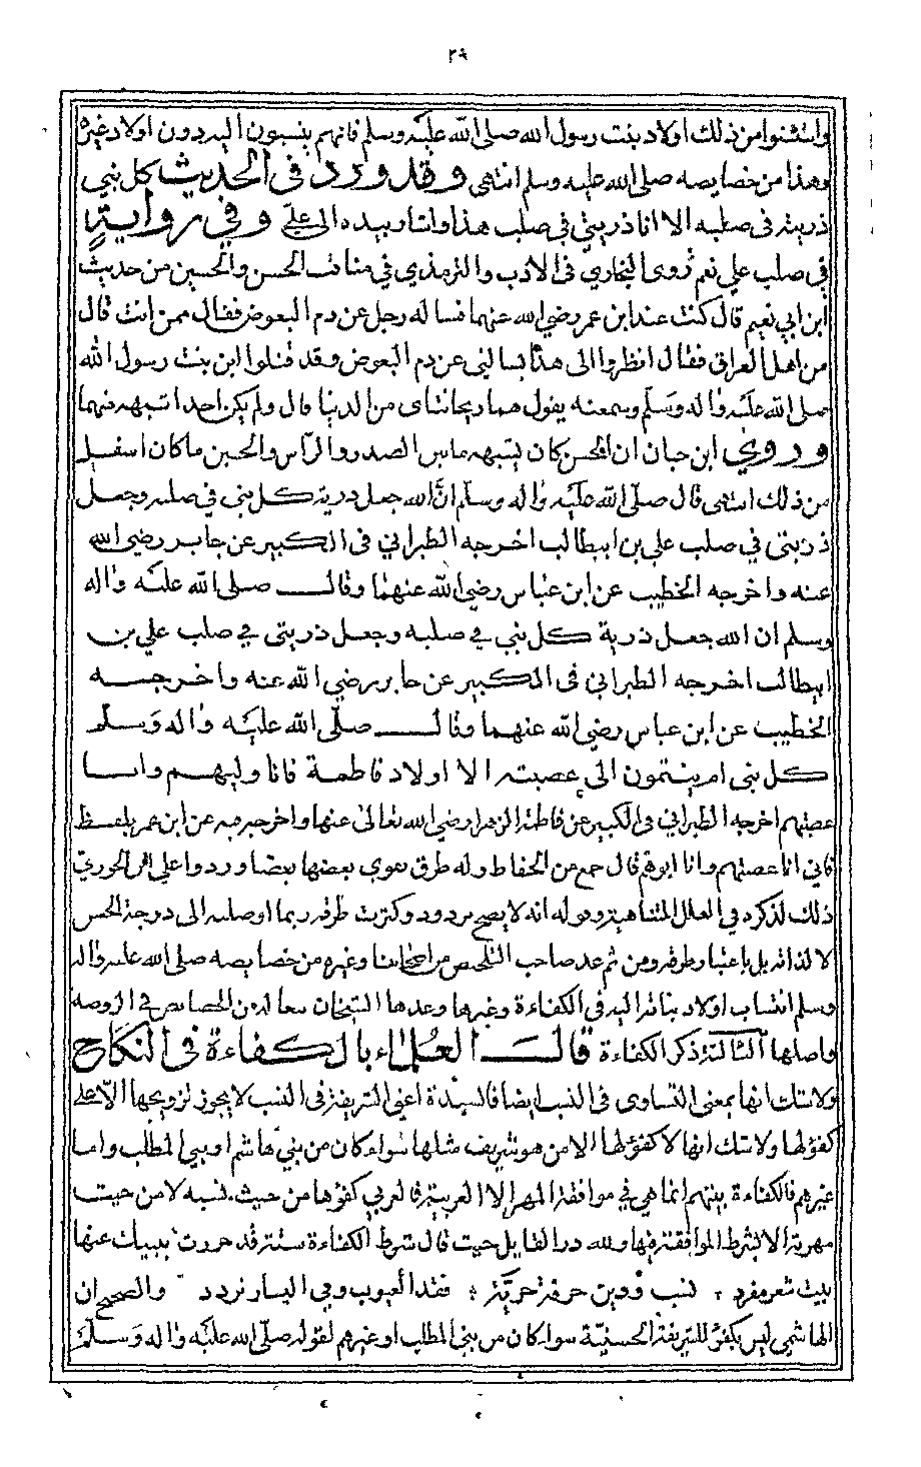 ٢٩
واستثنوا من ذلك اولاد بنت رسول الله صلى الله عليه وسلم فانهم ينسبون اليه دون اولاد غيره
وهذا من خصايصه صلى الله عليه وسلم انتهى وقد ورد في الحديث كل نبي
ذريته في صلبه الا انا ذريتي في صلب هذا واشار بيده الى علي وفي رواية
في صلب علي نعم روى البخاري في الادب والترمذي في مناقب الحسن والحسين من حديث
ابن ابي نعيم قال كنت عند ابن عمر رضي الله عنهما فساله رجل عن دم البعوض فقال ممن انت قال
من اهل العراق فقال انظروا الى هذا يسالني عن دم البعوض وقد قتلوا ابن بنت رسول الله
صلى الله عليه واله وسلم وسمعته يقول هما ريحانتاى من الدنيا قال ولم يكن احدا شبهه منهما
وروي ابن حبان ان الحسن كان يشبهه مابين الصدر والراس والحسين ماكان اسفل
من ذلك انتهى قال صلى الله عليه واله وسلم ان الله جعل ذرية كل نبي في صلبه وجعل
ذريتي في صلب علي بن ابيطالب اخرجه الطبراني في الكبير عن جابر رضي الله
عنه واخرجه الخطيب عن ابن عباس رضي الله عنهما وقال صلى الله عليه واله
وسلم ان الله جعل ذرية كل نبي في صلبه وجعل ذريتي في صلب علي بن
ابيطالب اخرجه الطبراني في الكبير عن جابر رضي الله عنه واخرجه
الخطيب عن ابن عباس رضي الله عنهما وقال صلى الله عليه واله وسلم
كل بني ام ينتمون الى عصبته الا اولاد فاطمة فانا وليهم وانا
عصبتهم اخرجه الطبراني في الكبير عن فاطمة الزهرا رضي الله تعالى عنها واخرجه عن ابن عمر بلفظ
فاني انا عصبتهم وانا ابوهم قال جمع من الحفاط وله طرق يقوي بعضها بعضا وردوا على ابن الجوزي
ذلك لذكره في العلل المتناهية وقوله انه لا يصح مردود وكثرت طرقه ربما اوصلته الى درجة الحسن
لا لذاته بل باعتبار طرقه ومن ثم عد صاحب التلخيص من اصحابنا وغيره من خصايصه صلى الله عليه واله
وسلم انتساب اولاد بناته اليه في الكفاءة وغيرها وعدها الشيخان من الخصايص في الروضه
واصلها الثالثة ذكر الكفاءة قالت العلماء بالكفاءة في النكاح
ولا شك انها بمعنى التساوى في النسب ايضا فالسيدة اعني الشريفة في النسب لا يجوز تزويجها الا على
كفؤ لها ولا شك انها لا كفؤ لها الا من هو شريف مثلها سواء كان من بني هاشم او بني المطلب واما
غيرهم فالكفاءة بينهم انما هي في موافقة المهر الا العربية فالعربي كفؤها من حيث نسبه لا من حيث
مهريته الا بشرط الموافقة فيها ولله در القايل حيث قال شرط الكفاءة ستة قد حررت بيبيك عنها
بيت شعر مفرد ؛ نسب ودين حرفة حرية ؛ فقد العيوب وفي اليسار تردد والصحيح ان
الهاشمي ليس بكفؤ للشريفة الحسنية سواء كان من بني المطلب او غيرهم لقوله صلى الله عليه واله وسلم